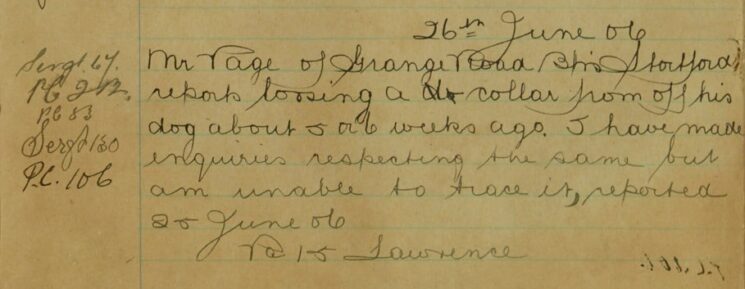 26th June 06
Sergt 67.
PC 212.
PC 83
Sergt 130
P.C. 106
Mr Page of Grange Road Bhs Stortford
reports loosing a collar from off his
dog about 5 or 6 weeks ago. I have made
enquiries respecting the same but
am unable to trace it, reported
25 June 06
Pc 15 Lawrence